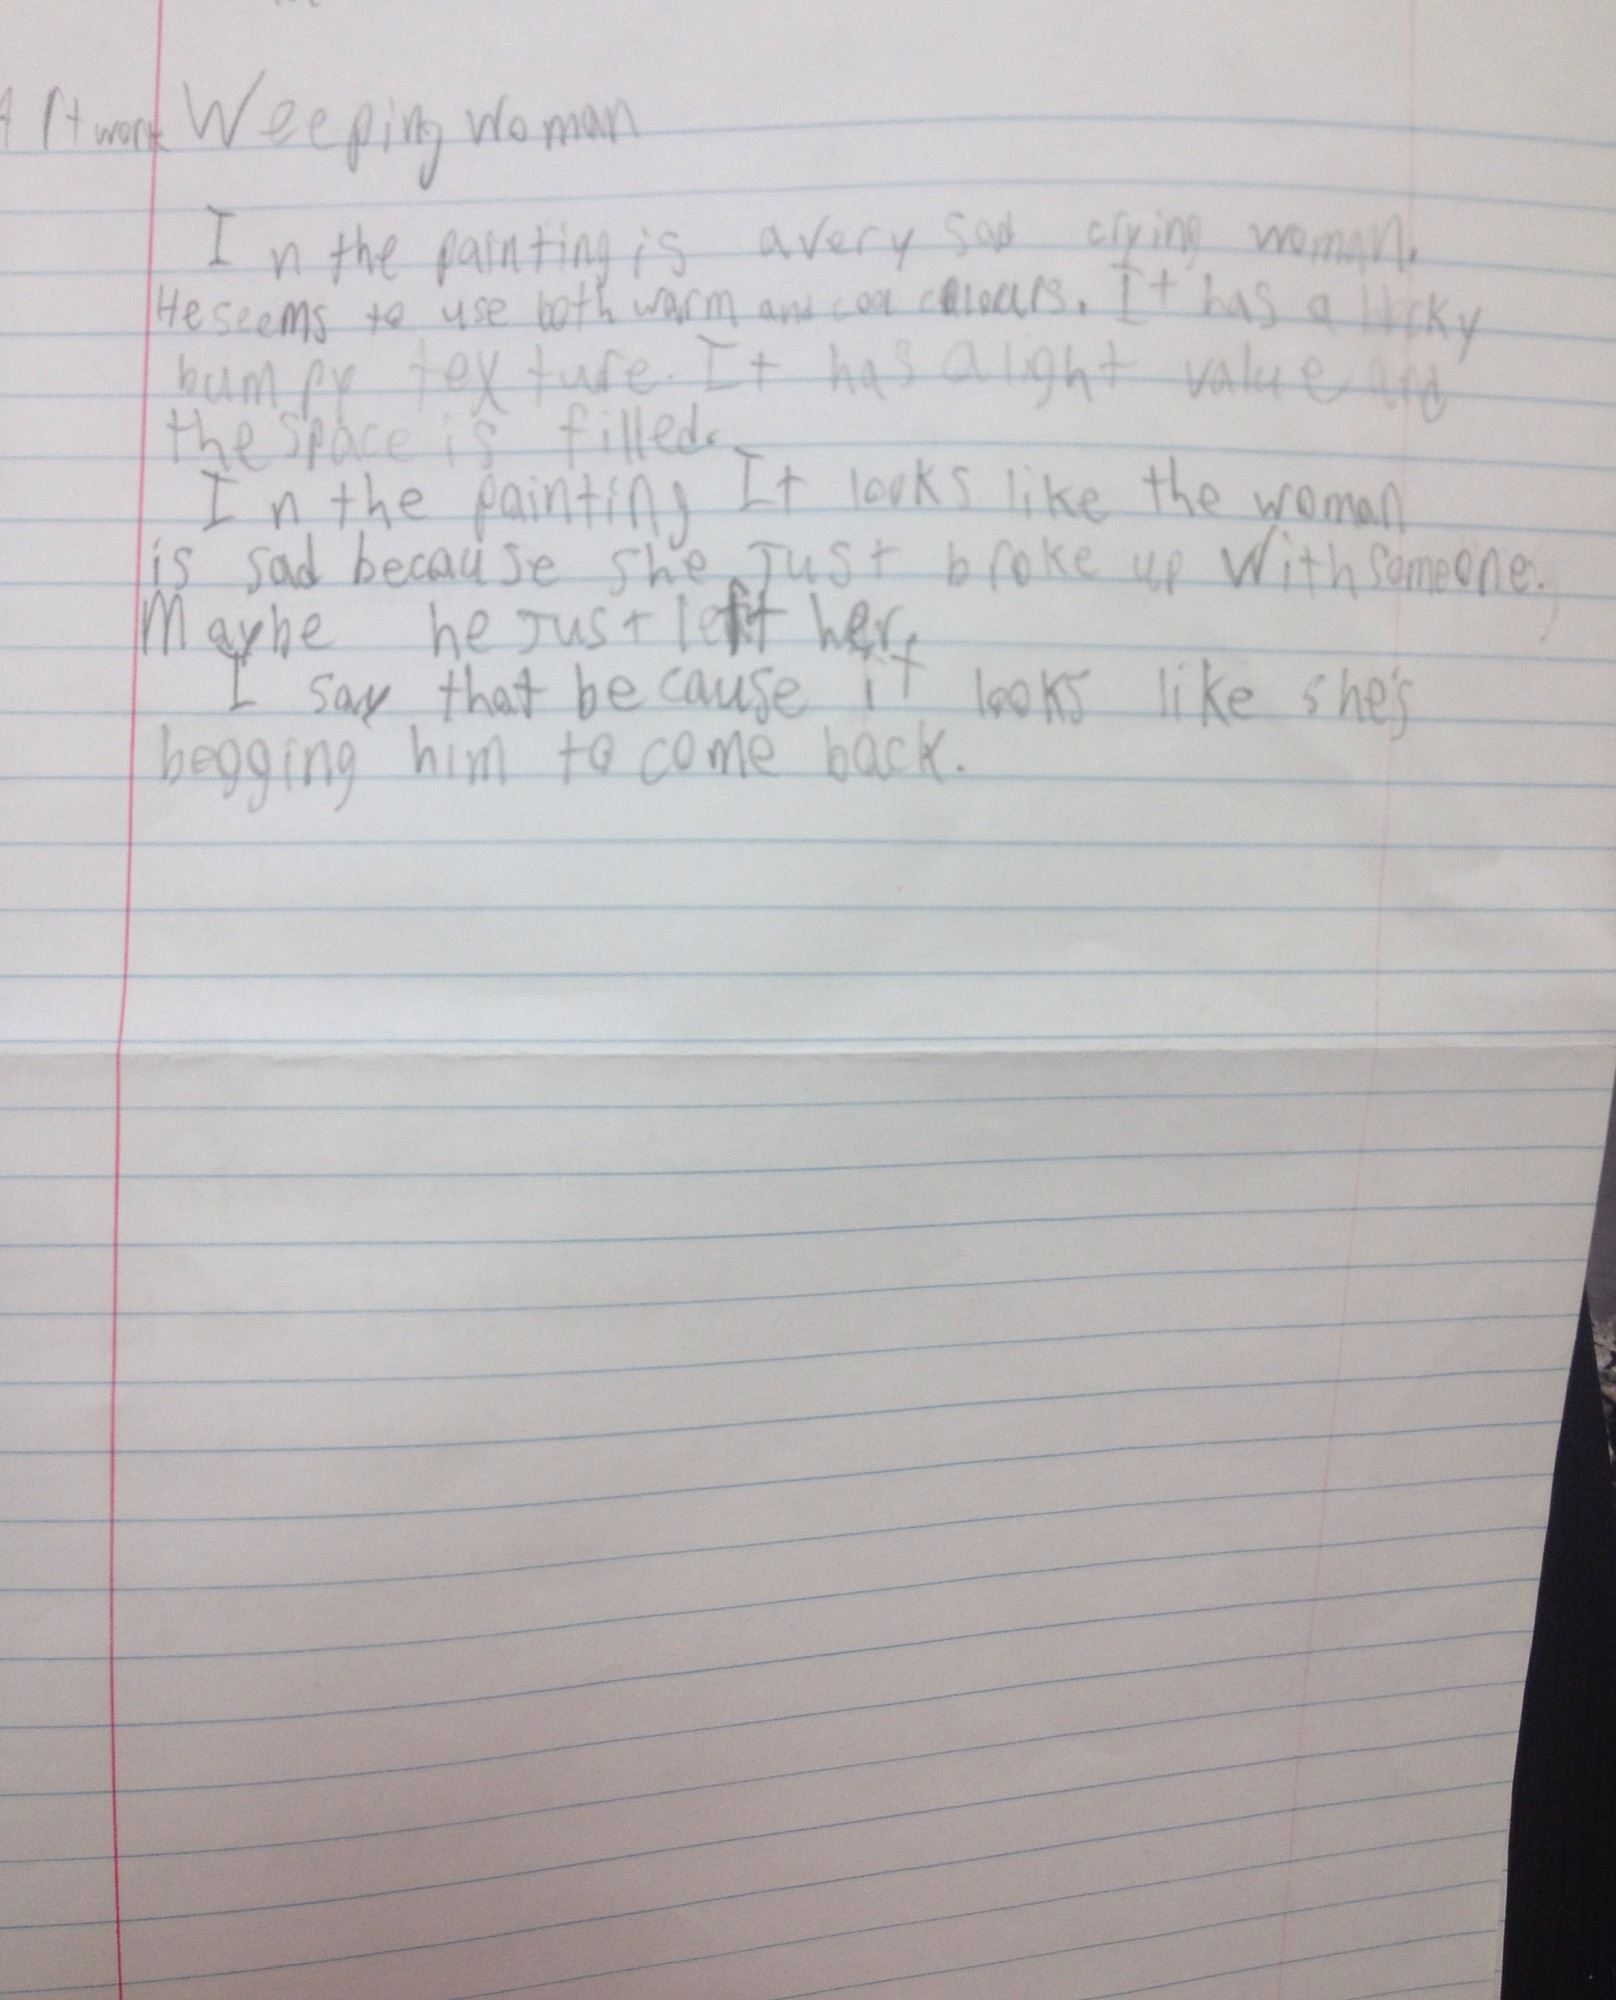 Artwork Weeping Woman
In the painting is a very sad crying woman.
He seems to use both warm and cool colours. It has a
bumpy texture. It has a light value and
the space is filled.
In the painting It looks like the woman
is sad because she Just broke up With someone.
Maybe he Just left her.
I say that because it looks like she's
begging him to come back.